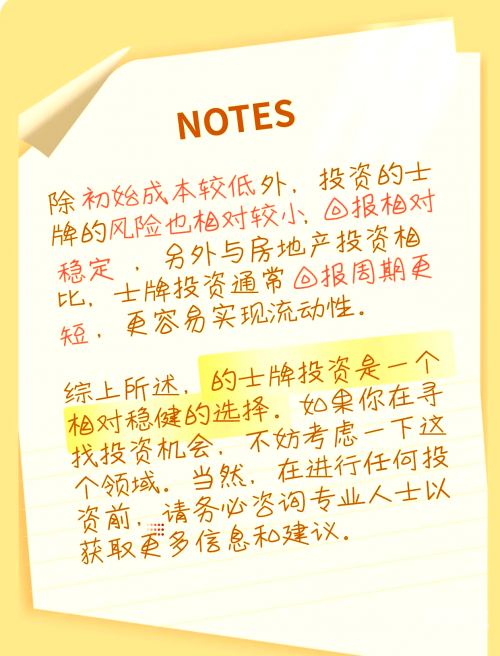 NOTES
除初始成本较低外，投资的士
牌的风险也相对较小，回报相对
稳定，另外与房地产投资相
比，士牌投资通常回报周期更
短，更容易实现流动性。
综上所述，的士牌投资是一个
相对稳健的选择。如果你在寻
找投资机会，不妨考虑一下这
个领域。当然，在进行任何投
资前，请务必咨询专业人士以
获取更多信息和建议。